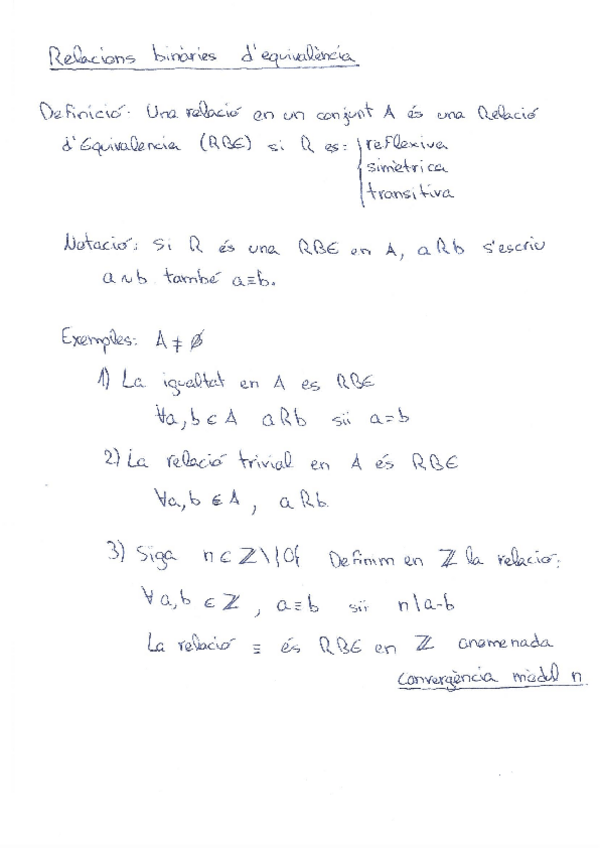 Relacions binàries d'equivalència
Definició: Una relació en un conjunt A és una Relació
d'Equivalencia (RBE) si R es: { reflexiva
simètrica
transitiva
Notació: Si R és una RBE en A, aRb s'escriu
a∼b també a≡b.
Exemples: A ≠ ∅
1) La igualtat en A es RBE
∀a,b ∈ A aRb sii a=b
2) La relació trivial en A és RBE
∀a,b ∈ A, aRb.
3) Siga n ∈ ℤ\{0} Definim en ℤ la relació:
∀a,b ∈ ℤ, a≡b sii n|a-b
La relació ≡ és RBE en ℤ anomenada
convergència mòdul n